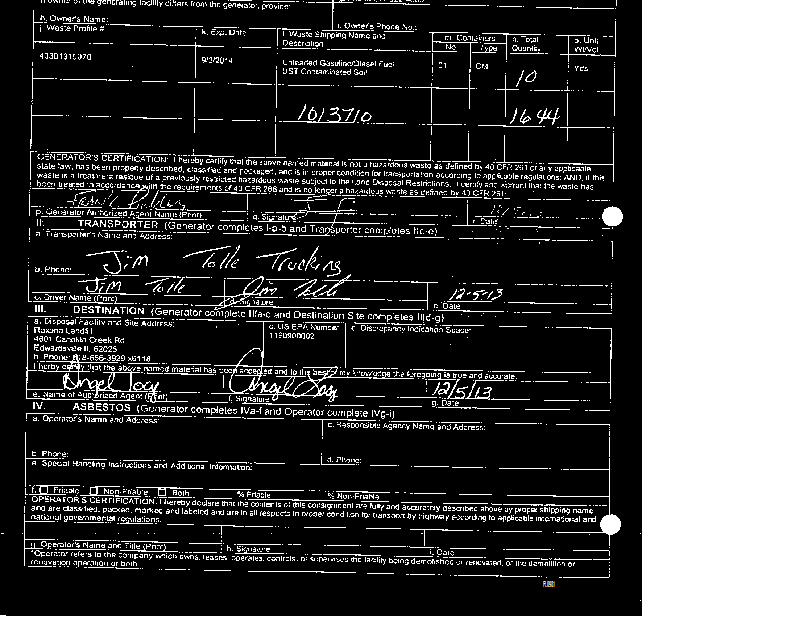 If owner of the generating facility differs from the generator, provide:
h. Owner's Name: i. Owner's Phone No.:
j. Waste Profile # k. Exp. Date l. Waste Shipping Name and Description m. Containers n. Total Quantity o. Unit Wt/Vol
No Type
9/3/2014 Unleaded Gasoline/Diesel Fuel 01 CM 10 Yes
UST Contaminated Soil
1013710 1644
GENERATOR'S CERTIFICATION: I hereby certify that the above named material is not a hazardous waste as defined by 40 CFR 261 or any applicable
state law, has been properly described, classified and packaged, and is in proper condition for transportation according to applicable regulations; AND, if this
waste is a treatment residue of a previously restricted hazardous waste subject to the Land Disposal Restrictions, I certify and warrant that the waste has
been treated in accordance with the requirements of 40 CFR 268 and is no longer a hazardous waste as defined by 40 CFR 261.
p. Generator Authorized Agent Name (Print) q. Signature r. Date
II. TRANSPORTER (Generator completes IIa-b and Transporter completes IIc-e)
a. Transporter's Name and Address:
Jim Tolle Trucking
b. Phone:
Jim Tolle Jim Tolle 12-5-13
c. Driver Name (Print) d. Signature e. Date
III. DESTINATION (Generator complete IIIa-c and Destination Site completes IIId-g)
a. Disposal Facility and Site Address: c. US EPA Number d. Discrepancy Indication Space:
Roxana Landfill 1190900002
4601 Cahokia Creek Rd
Edwardsville IL 62025
b. Phone: 618-656-3929 x6118
I hereby certify that the above named material has been accepted and to the best of my knowledge the foregoing is true and accurate.
Angel Angel 12/5/13
e. Name of Authorized Agent (Print) f. Signature g. Date
IV. ASBESTOS (Generator completes IVa-f and Operator complete IVg-i)
a. Operator's Name and Address: c. Responsible Agency Name and Address:
b. Phone: d. Phone:
e. Special Handling Instructions and Additional Information:
f. Friable Non-Friable Both % Friable % Non-Friable
OPERATOR'S CERTIFICATION: I hereby declare that the contents of this consignment are fully and accurately described above by proper shipping name
and are classified, packed, marked and labeled and are in all respects in proper condition for transport by highway according to applicable international and
national governmental regulations.
g. Operator's Name and Title (Print) h. Signature i. Date
*Operator refers to the company which owns, leases, operates, controls, or supervises the facility being demolished or renovated, or the demolition or
renovation operation or both